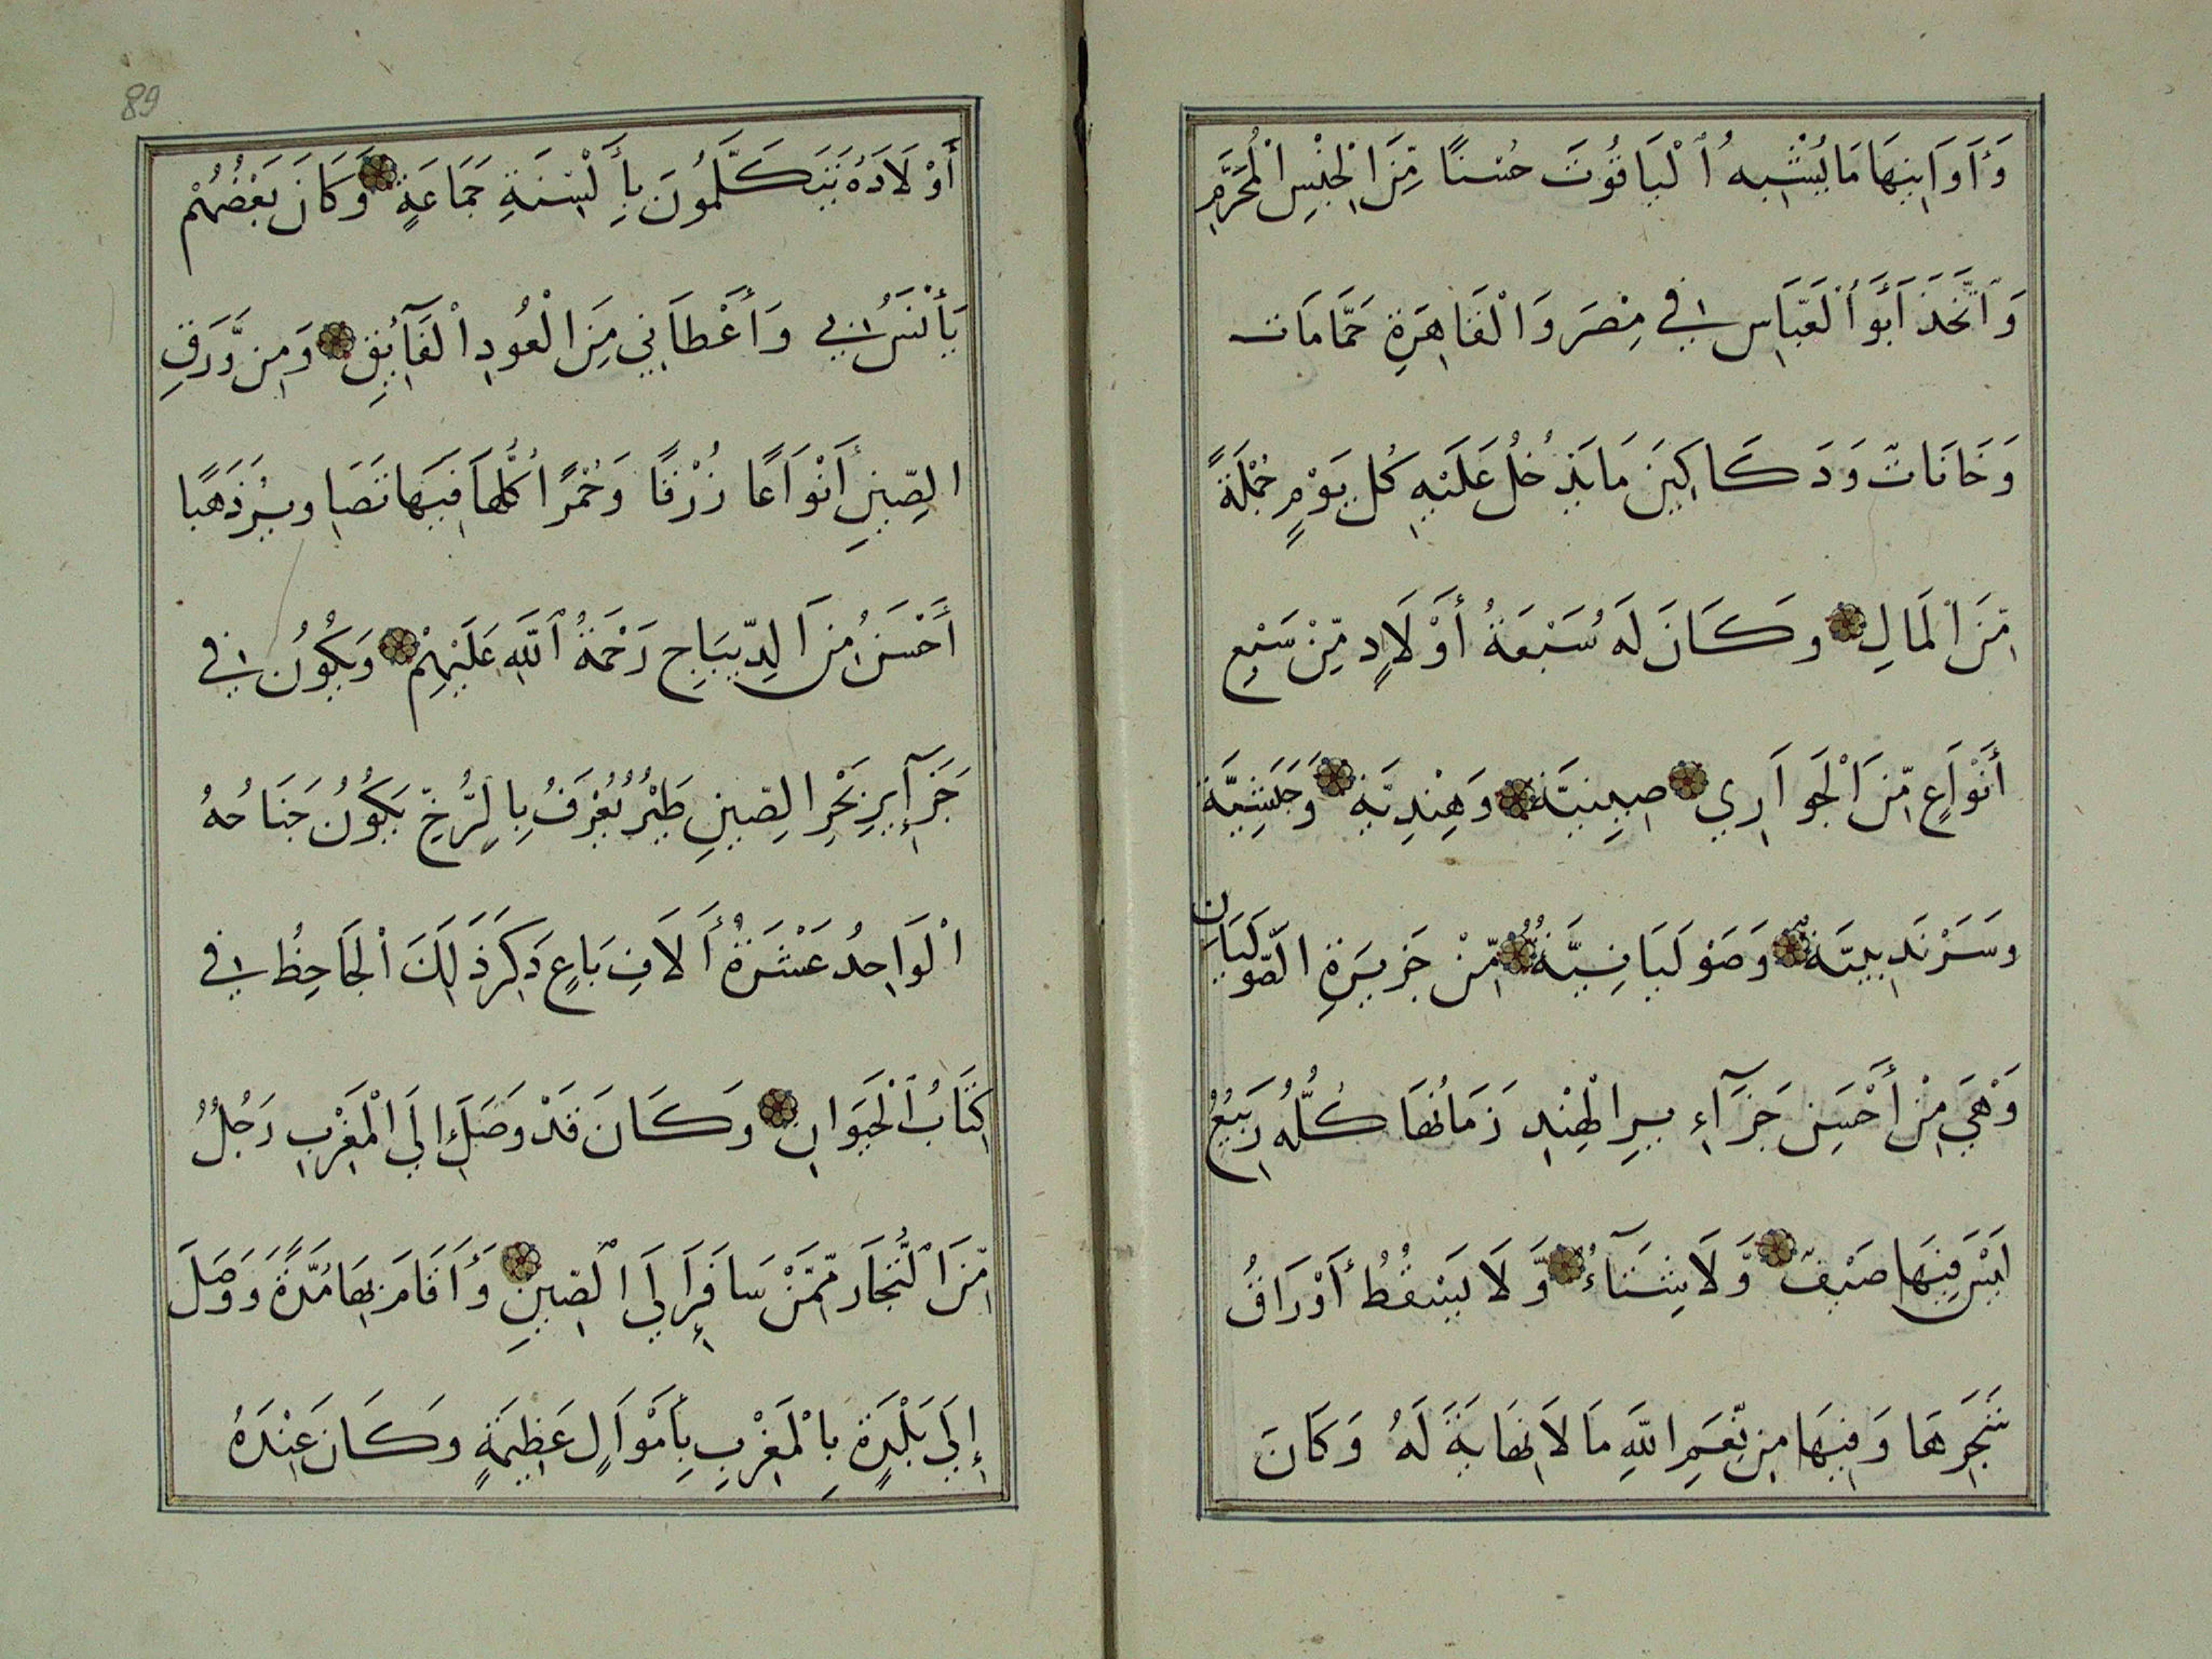 وَأَوَانِيهَا مَا يُشْبِهُ ٱلْيَاقُوتَ حُسْنًا مِّنَ الْجِنْسِ الْمُحَرَّمِ
وَٱتَّخَذَ أَبُو ٱلْعَبَّاسِ فِي مِصْرَ وَالْقَاهِرَةِ حَمَّامَات
وَخَانَاتْ وَدَكَاكِينَ مَا يَدْخُلُ عَلَيْهِ كُل يَوْمٍ جُمْلَةً
مِّنَ الْمَالِ وَكَانَ لَهُ سَبْعَةُ أَوْلَادٍ مِّنْ سَبْعِ
أَنْوَاعٍ مِّنَ الْجَوَارِي صِينِيَّةٍ وَهِنْدِيَّةٍ وَحَبَشِيَّة
وسَرَنْدِيبِيَّة وَصَوْلَيَانِيَّةٌ مِّنْ جَزِيرَةِ الصَّوْلَيَانِ
وَهْيَ مِنْ أَحْسَنِ جَزَآءِيرِ الْهِنْدِ زَمَانُهَا كُلُّهُ رَبِيعُ
لَيْسَ فِيهَا صَيْفٌ وَّلَا شِتَآءٌ وَّلَا يَسْقُطُ أَوْرَاقُ
شَجَرِهَا وَفِيهَا مِن نِّعَمِ اللَّهِ مَا لَا نِهَايَةَ لَهُ وَكَانَ
89
أَوْلَادَهُ يَتَكَلَّمُونَ بِأَلْسِنَةِ جَمَاعَةٍ وَكَانَ بَعْضُهُمْ
يَأْنَسُ بِي وَأَعْطَانِي مِنَ الْعُودِ الْفَآئِقِ وَمِن وَّرَقِ
الصِّينِ أَنْوَاعًا زُرْقًا وَحُمْرًا كُلُّهَا فِيهَا تَصَاوِيرُ ذَهَبًا
أَحْسَنُ مِنَ الدِّيبَاجِ رَحْمَةُ ٱللَّهِ عَلَيْهِمْ وَيَكُونُ فِي
جَزَآئِرِ بَحْرِ الصِّينِ طَيْرٌ يُعْرَفُ بِالرُّخِّ يَكُونُ جَنَاحُهُ
الْوَاحِدُ عَشْرَةُ أَلَافِ بَاعٍ ذَكَرَ ذَلِكَ الْجَاحِظُ فِي
كِتَابُ ٱلْحَيَوَانِ وَكَانَ قَدْ وَصَلَ إِلَي الْمَغْرِبِ رَجُلٌ
مِّنَ ٱلتُّجَّارِ مِّمَّنْ سَافَرَ إِلَي ٱلصِّينِ وَأَقَامَ بِهَا مُدَّةً وَوَصَلَ
إِلَي بَلْدَةٍ بِالْمَغْرِبِ بِأَمْوَالٍ عَظِيمَةٍ وكَانَ عِنْدَهُ